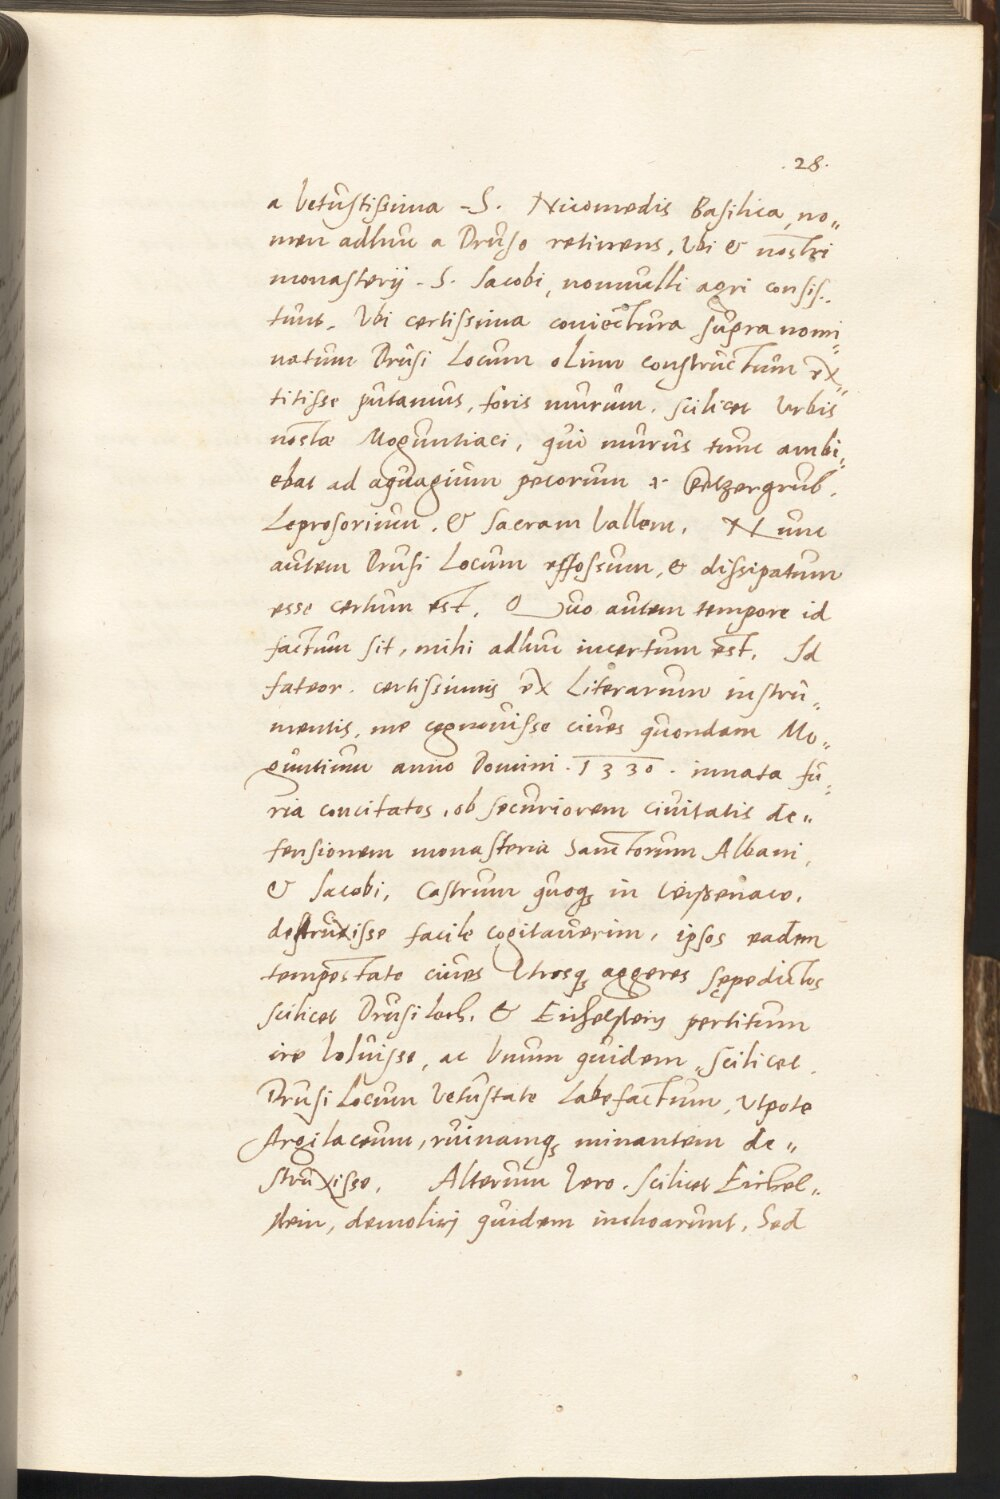 .28.
a vetustissima S. Nicomedis Basilica, no„
men adhuc a Druso retinens. Vbi & nostri
monasterij S. Jacobi, nonnulli agri consis„
tunt. Vbi certissima coniectura supra nomi„
natum Drusi Locum olim constructum ex„
titisse putamus, foris murum. scilicet Vrbis
nostræ Moguntiaci, qui murus tunc ambi„
ebat ad aquagium pecorum
Leprosorium. & sacram Vallem. Nunc
autem Drusi Locum effossum, & dissipatum
esse certum est. Quo autem tempore id
factum sit, mihi adhuc incertum est. Id
fateor. certissimis ex Literarum instru„
mentis, me cognouisse ciues quondam Mo„
guntinu anno Domini .1330. innata fu„
ria concitatos, ob securiorem ciuitatis de„
fensionem monasteria Sanctorum Albani,
& Jacobi, Castrum quoq in Weissenaco.
destruxisse facile cogitauerim, ipsos eadem
tempestate ciues Vtrosq aggeres sępedictos
scilicet Drusiloch. & Eichelsteÿ pertitum
ire Voluisse, ac Vnum quidem, scilicet
Drusi Locum Vetustate Labefactum, Vtpote
Argilaceum, ruinamq minantem de„
struxisse. Alterum Vero. scilicet Eichel„
stein, demolirj quidem inchoarunt. Sed